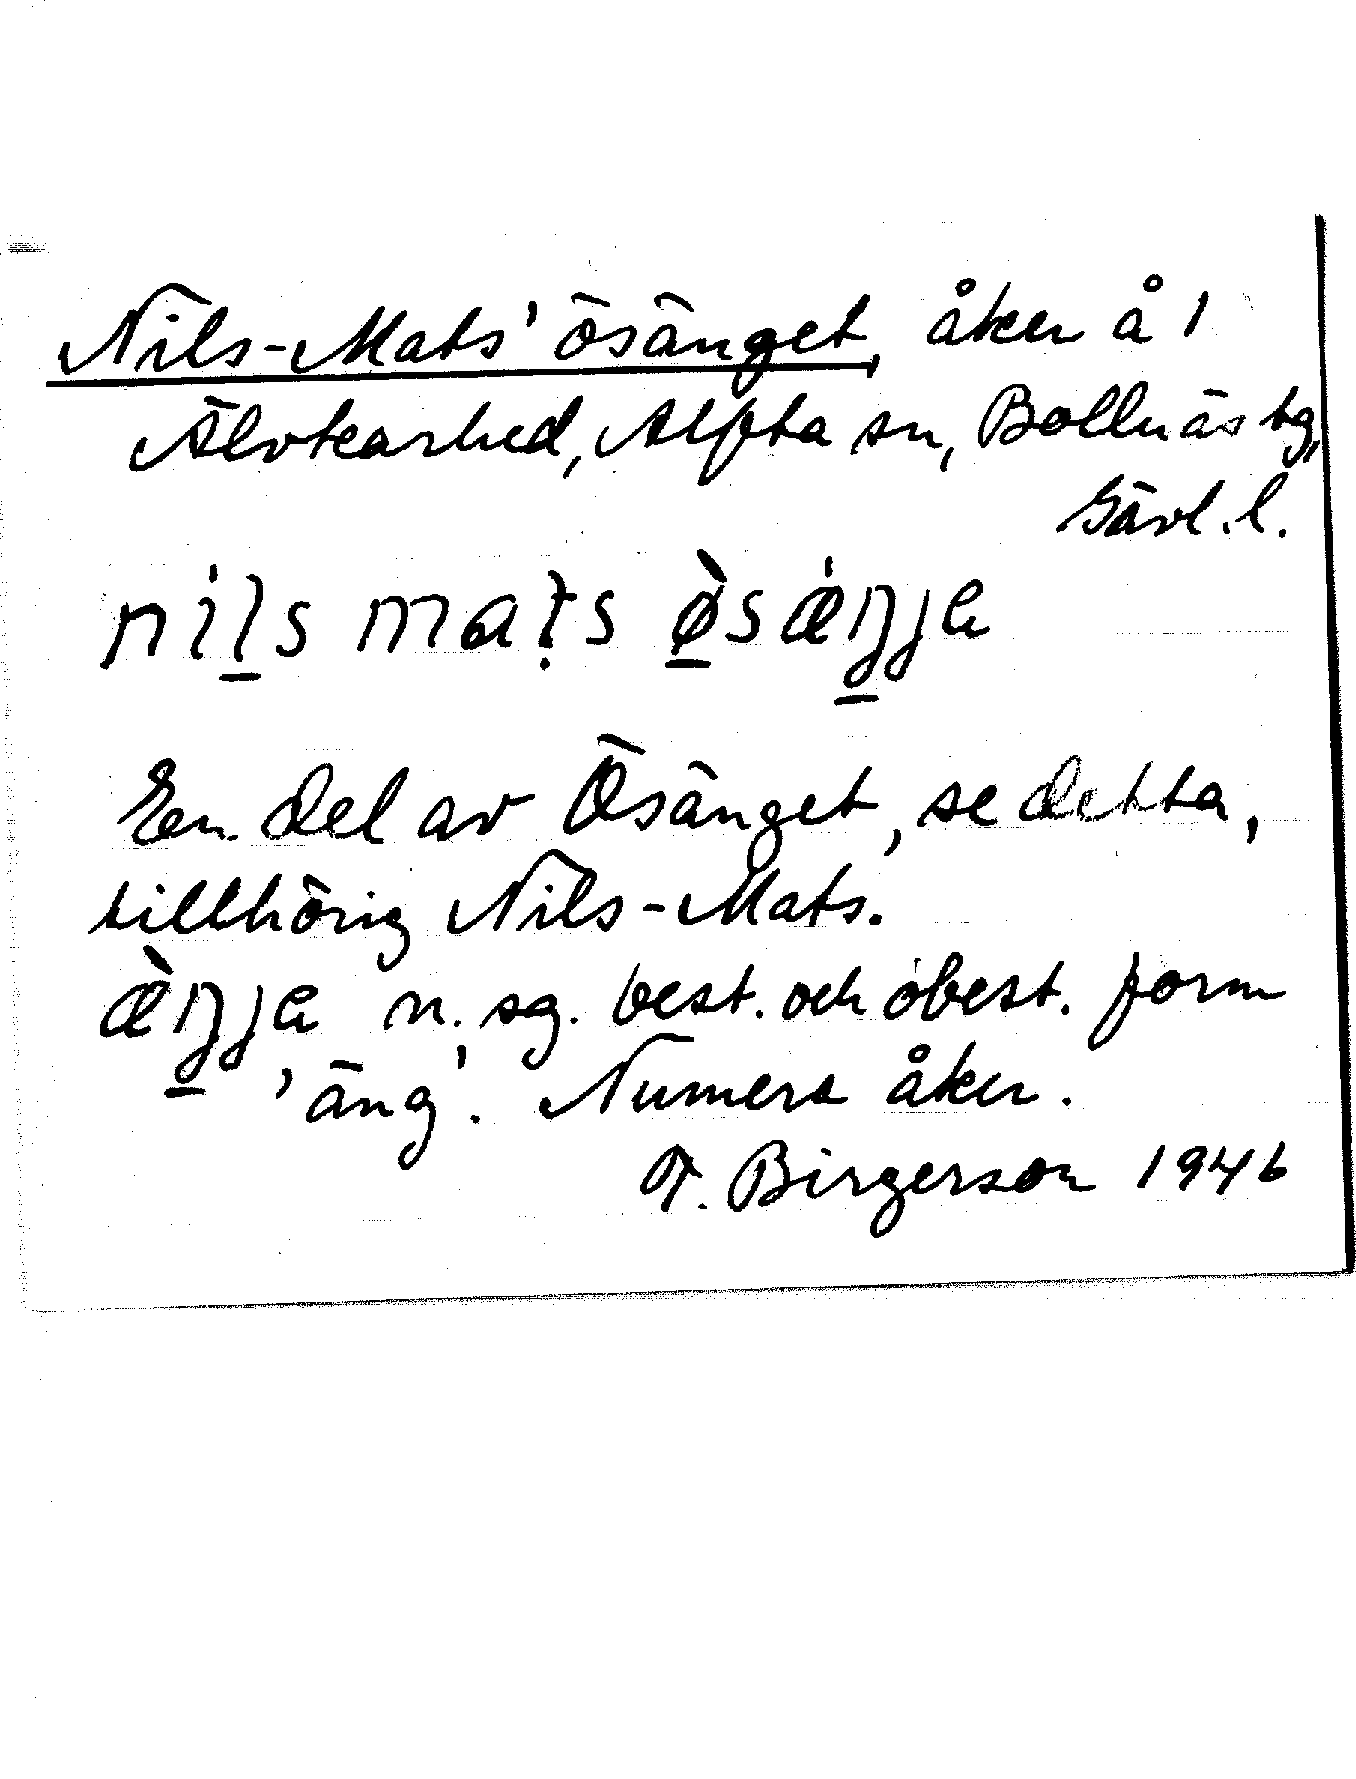 Nils-Mats' ösänget, åker å 1
Älvkarhed, Alfta sn, Bollnäs tg,
Gävl. l.
nils mats ø̀sæŋja
En del av Ösänget, se detta,
tillhörig Nils-Mats.
æ̀ŋja n. sg. best. och obest. form
'äng'. Numera åker.
F. Birgerson 1946